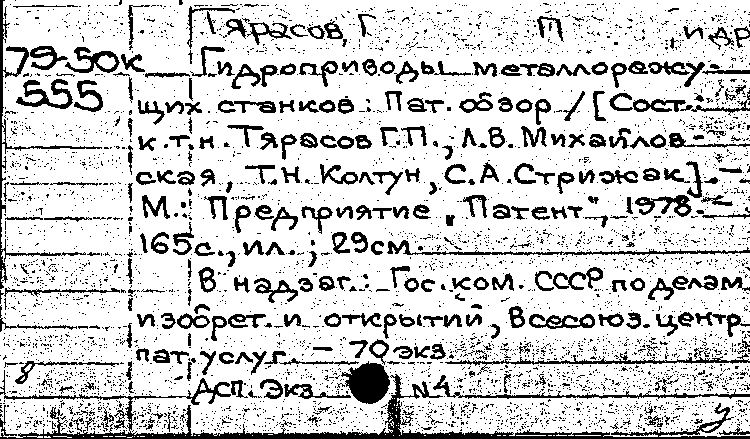 Тярасов, Г. П. и др
79-50к Гидроприводы металлорежу-
555 щих станков : Пат. обзор / [Сост.:
к.т.н. Тярасов Г.П., Л.В. Михайлов-
ская, Т.Н. Колтун, С.А. Стрижак]. -
М.: Предприятие „Патент", 1978. -
165с., ил. ; 29см.
В надзаг.: Гос. ком. СССР по делам
изобрет. и открытий, Всесоюз. центр
пат. услуг. - 70экз.
8 Дсп. Экз. N4.
у